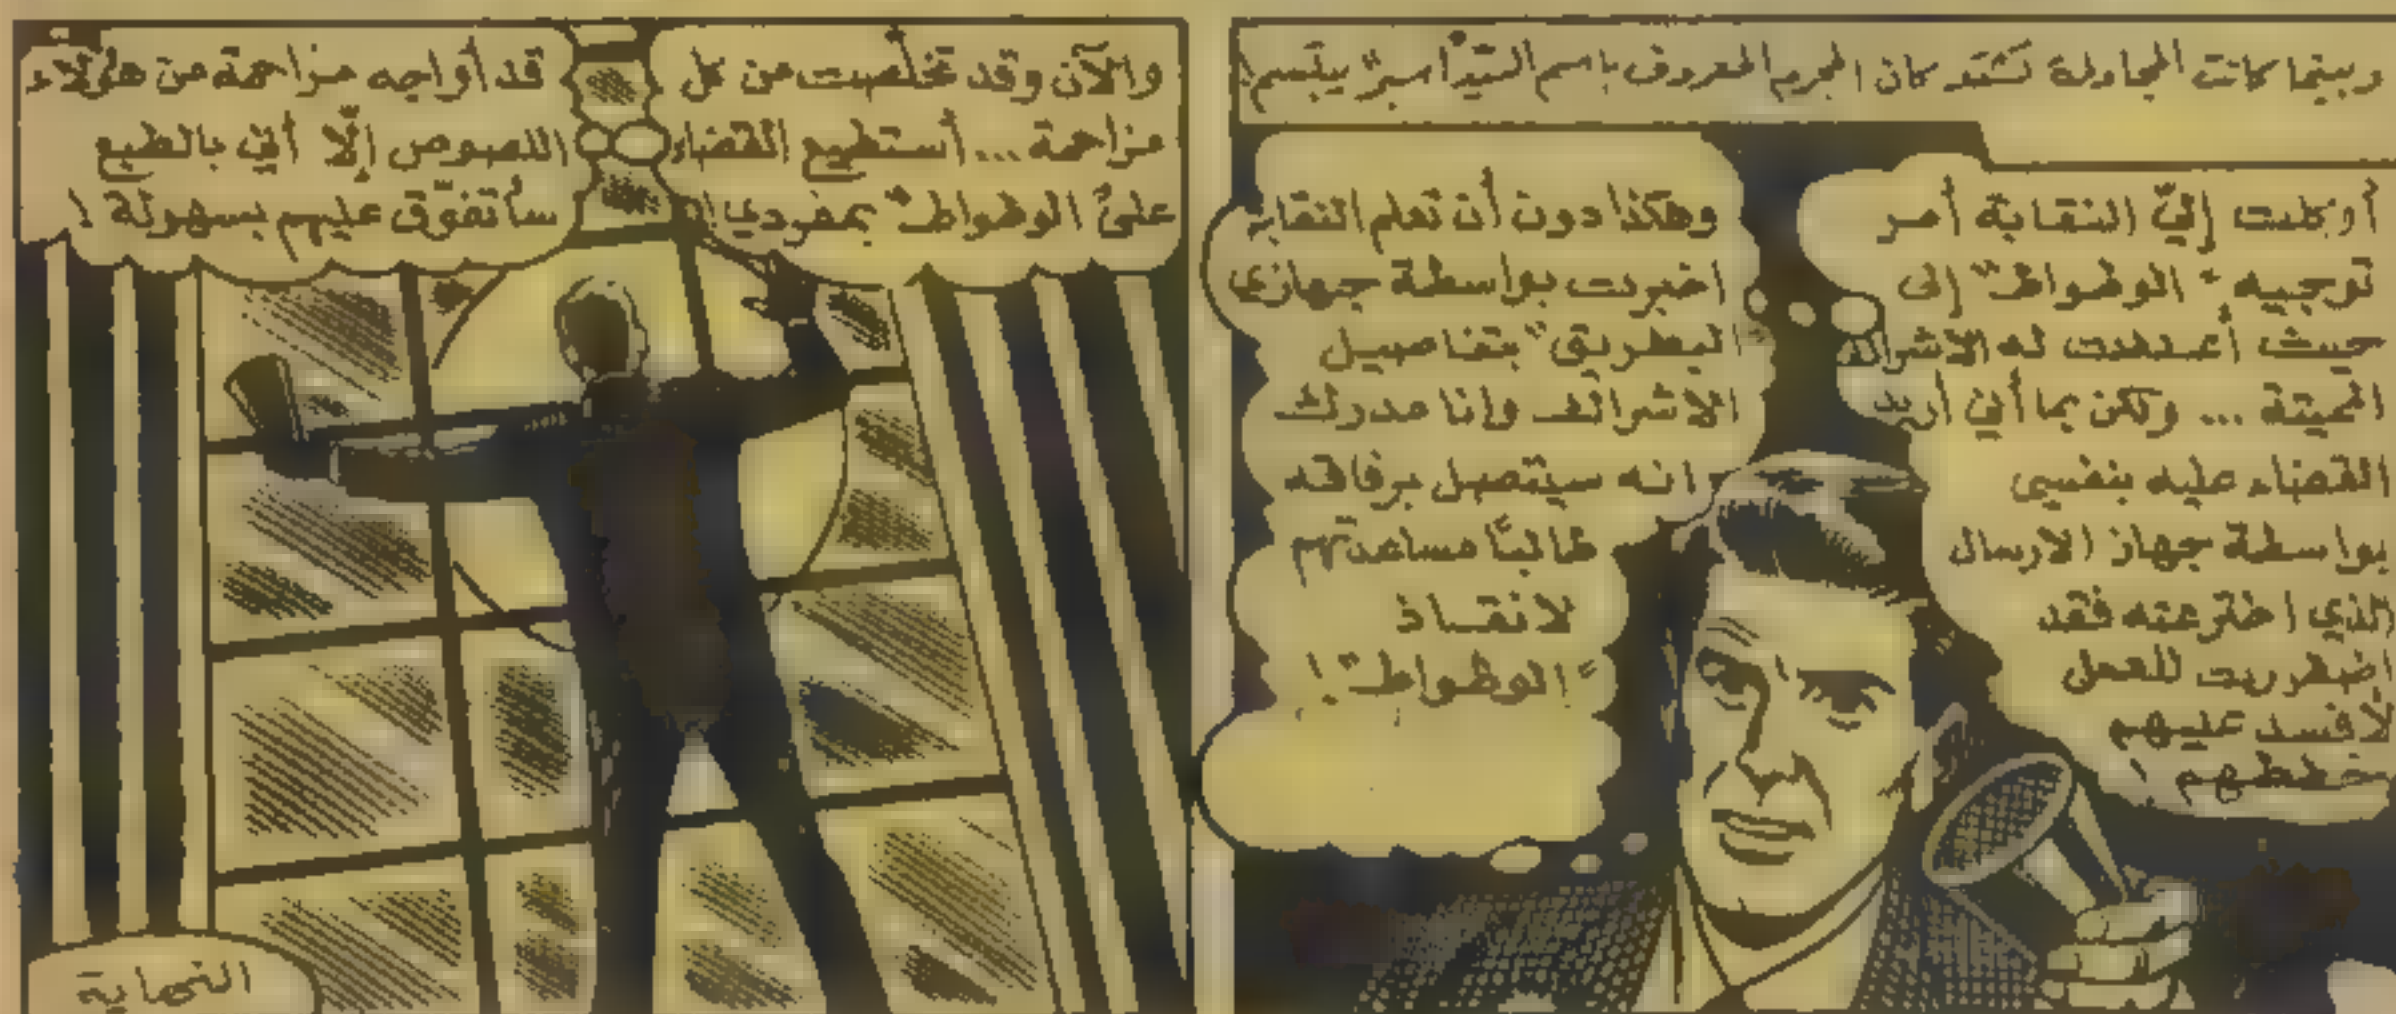 وبينما كانت المجادلة تشتد كان المجرم المعروف باسم السيّد أسبر" يبتسم!
أوكلت إليّ النقابة أمر
توجيه "الوطواط" إلى
حيث أعددت له الاشراك
المميتة ... ولكن بما أني أريد
القضاء عليه بنفسي
بواسطة جهاز الارسال
الذي اخترعته فقد
اضطررت للعمل
لأفسد عليهم
خططهم !
وهكذا دون أن تعلم النقابة
اخبرت بواسطة جهازي
"البطريق" بتفاصيل
الاشراك وانا مدرك
انه سيتصل برفاقه
طالبًا مساعدتهم
لانقاذ
"الوطواط"!
والآن وقد تخلصت من كل
مزاحمة ... أستطيع القضاء
على "الوطواط" بمفردي!
قد أواجه مزاحمة من هؤلاء
اللصوص إلّا أني بالطبع
سأتفوّق عليهم بسهولة !
النهاية